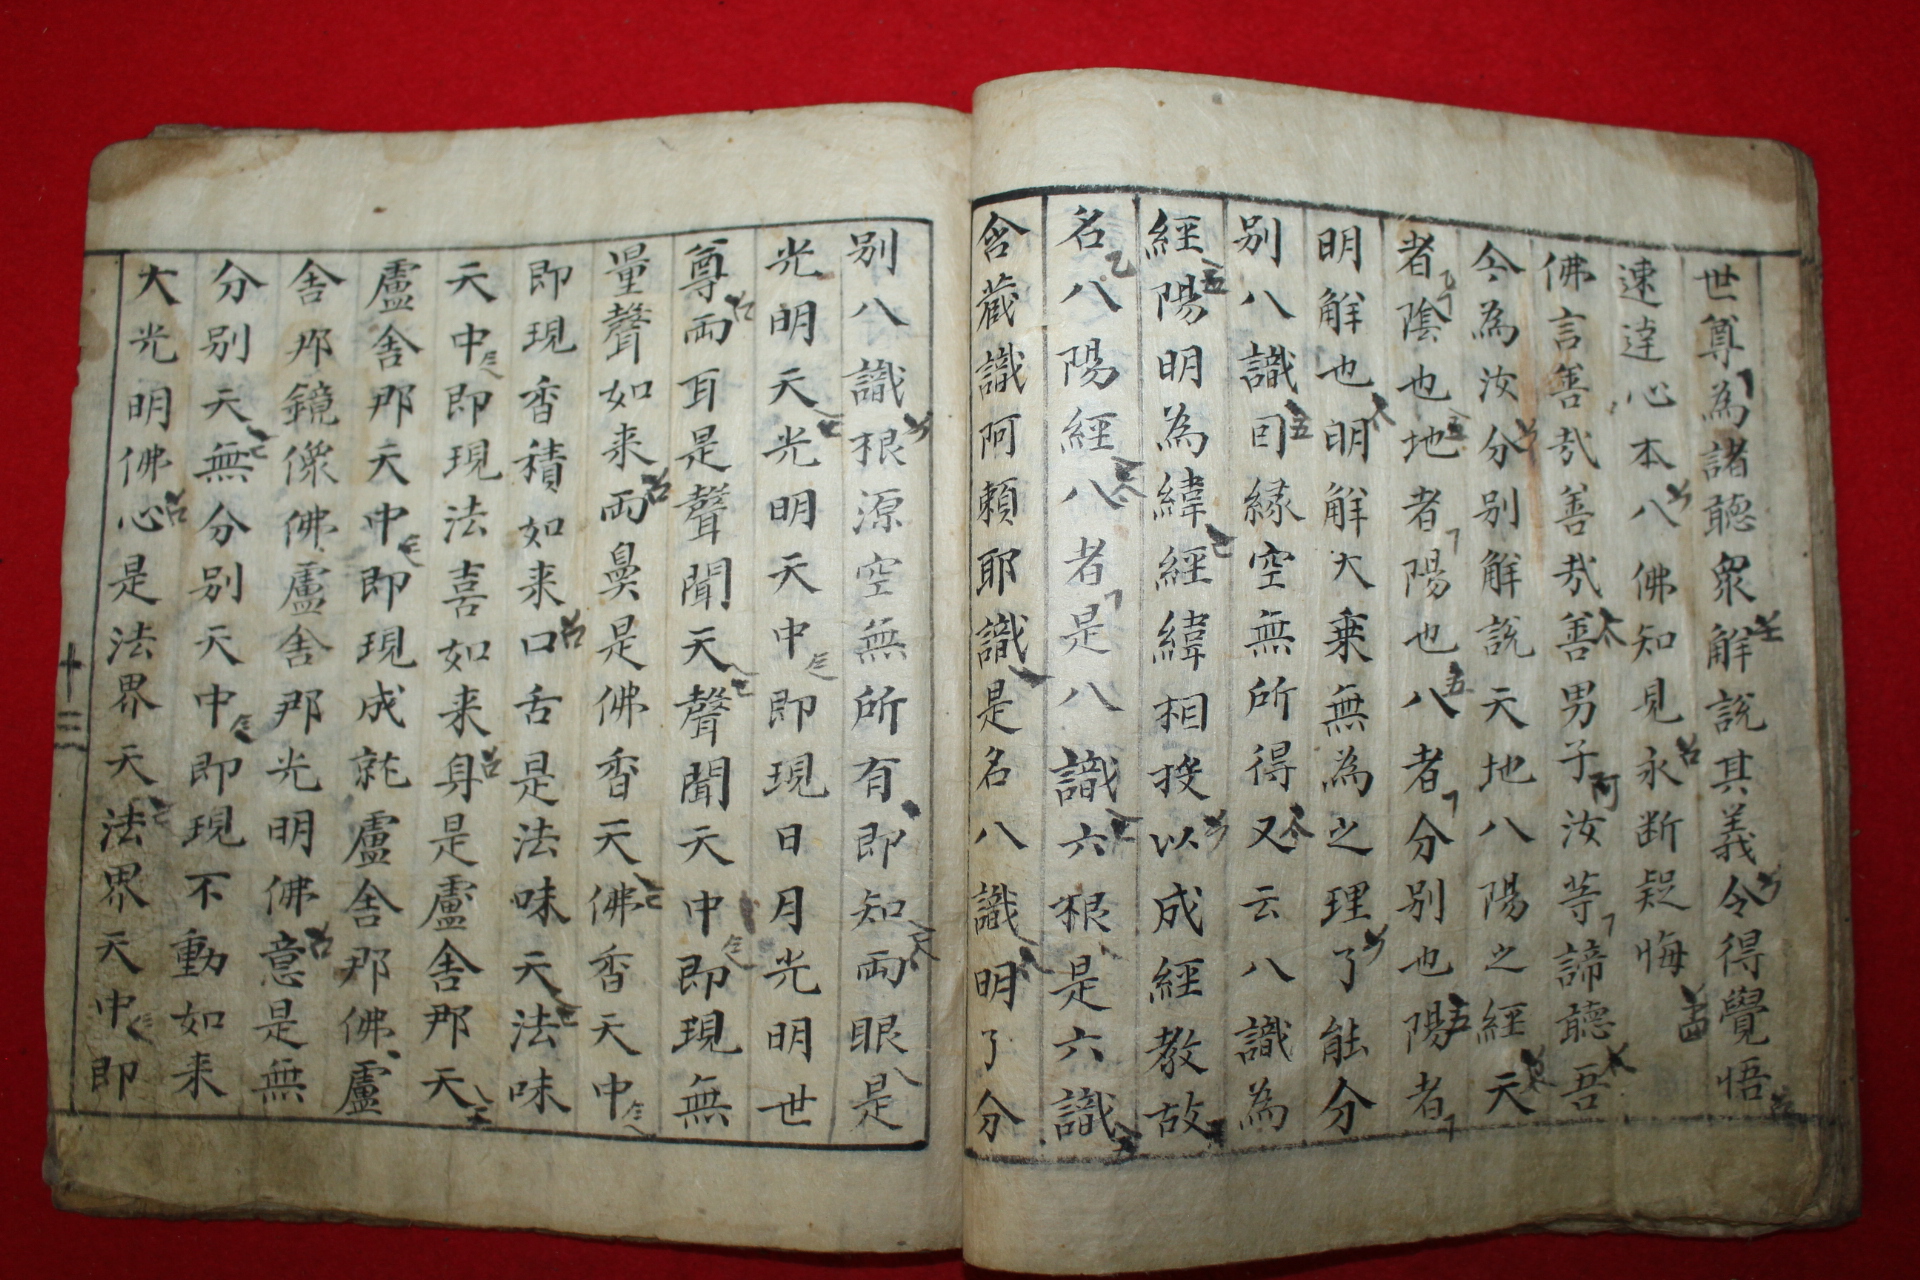 世尊為諸聽衆解說其義令得覺悟
速達心本八佛知見永断疑悔
佛言善哉善哉善男子汝等諦聽吾
今為汝分别解說天地八陽之經天
者陰也地者陽也八者分别也陽者
明解也明解大乗無為之理了能分
别八識囙縁空無所得又云八識為
經陽明為緯經緯相投以成經教故
名八陽經八者是八識六根是六識
含蔵識阿頼耶識是名八識明了分
别八識根源空無所有即知兩眼是
光明天光明天中即現日月光明世
尊兩耳是聲聞天聲聞天中即現無
量聲如来兩鼻是佛香天佛香天中
即現香積如来口舌是法味天法味
天中即現法喜如来身是盧舎那天
盧舎那天中即現成就盧舎那佛盧
舎那鏡像佛盧舎那光明佛意是無
分别天無分别天中即現不動如来
大光明佛心是法界天法界天中即
十三